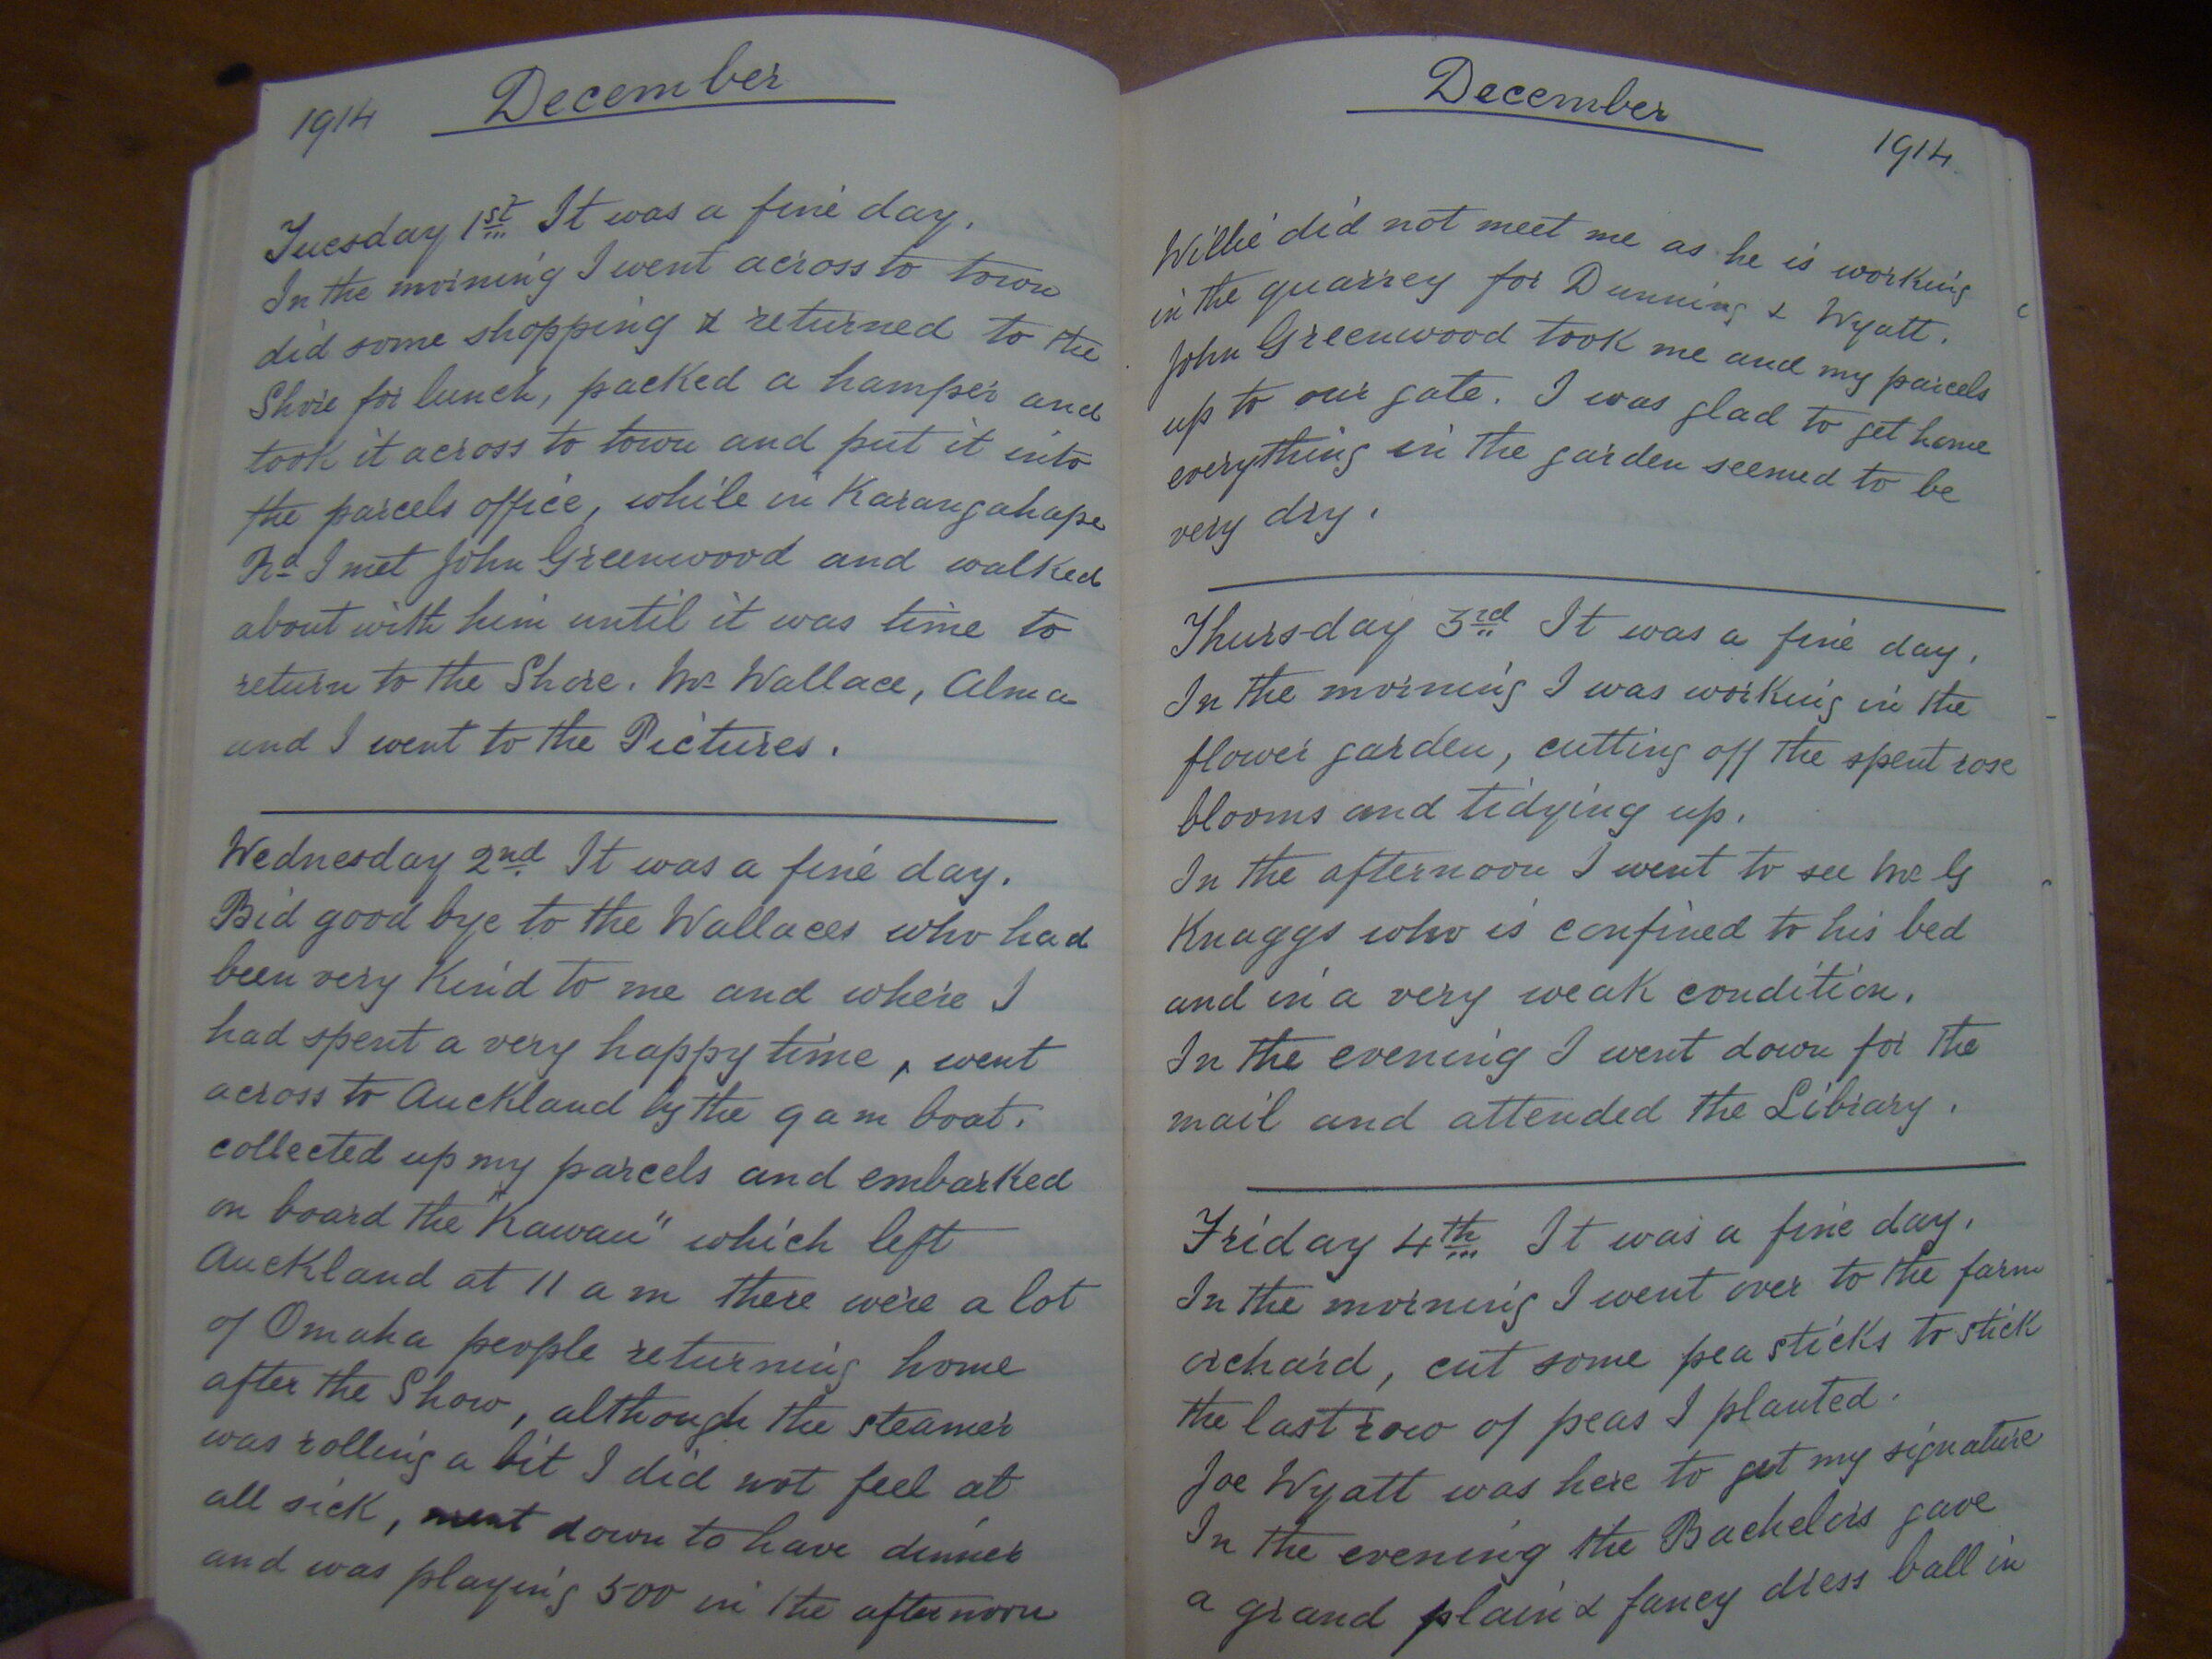 1914 December
Tuesday 1st It was a fine day.
In the morning I went across to town
did some shopping & returned to the
Shore for lunch, packed a hamper and
took it across to town and put it into
the parcels office, while in Karangahape
Rd I met John Greenwood and walked
about with him until it was time to
return to the Shore. Mr Wallace, Alma
and I went to the Pictures.
Wednesday 2nd It was a fine day.
Bid good bye to the Wallaces who had
been very kind to me and where I
had spent a very happy time, went
across to Auckland by the 9 am boat.
collected up my parcels and embarked
on board the "Kawau" which left
Auckland at 11 a m there were a lot
of Omaha people returning home
after the Show, although the steamer
was rolling a bit I did not feel at
all sick, went down to have dinner
and was playing 500 in the afternoon
December
1914
Willie did not meet me as he is working
in the quarrey for Dunning & Wyatt.
John Greenwood took me and my parcels
up to our gate. I was glad to get home
everything in the garden seemed to be
very dry.
Thursday 3rd It was a fine day.
In the morning I was working in the
flower garden, cutting off the spent rose
blooms and tidying up.
In the afternoon I went to see Mr G
Knaggs who is confined to his bed
and in a very weak condition.
In the evening I went down for the
mail and attended the Library.
Friday 4th It was a fine day.
In the morning I went over to the farm
orchard, cut some pea sticks to stick
the last row of peas I planted.
Joe Wyatt was here to get my signature
In the evening the Bachelors gave
a grand plain & fancy dress ball in